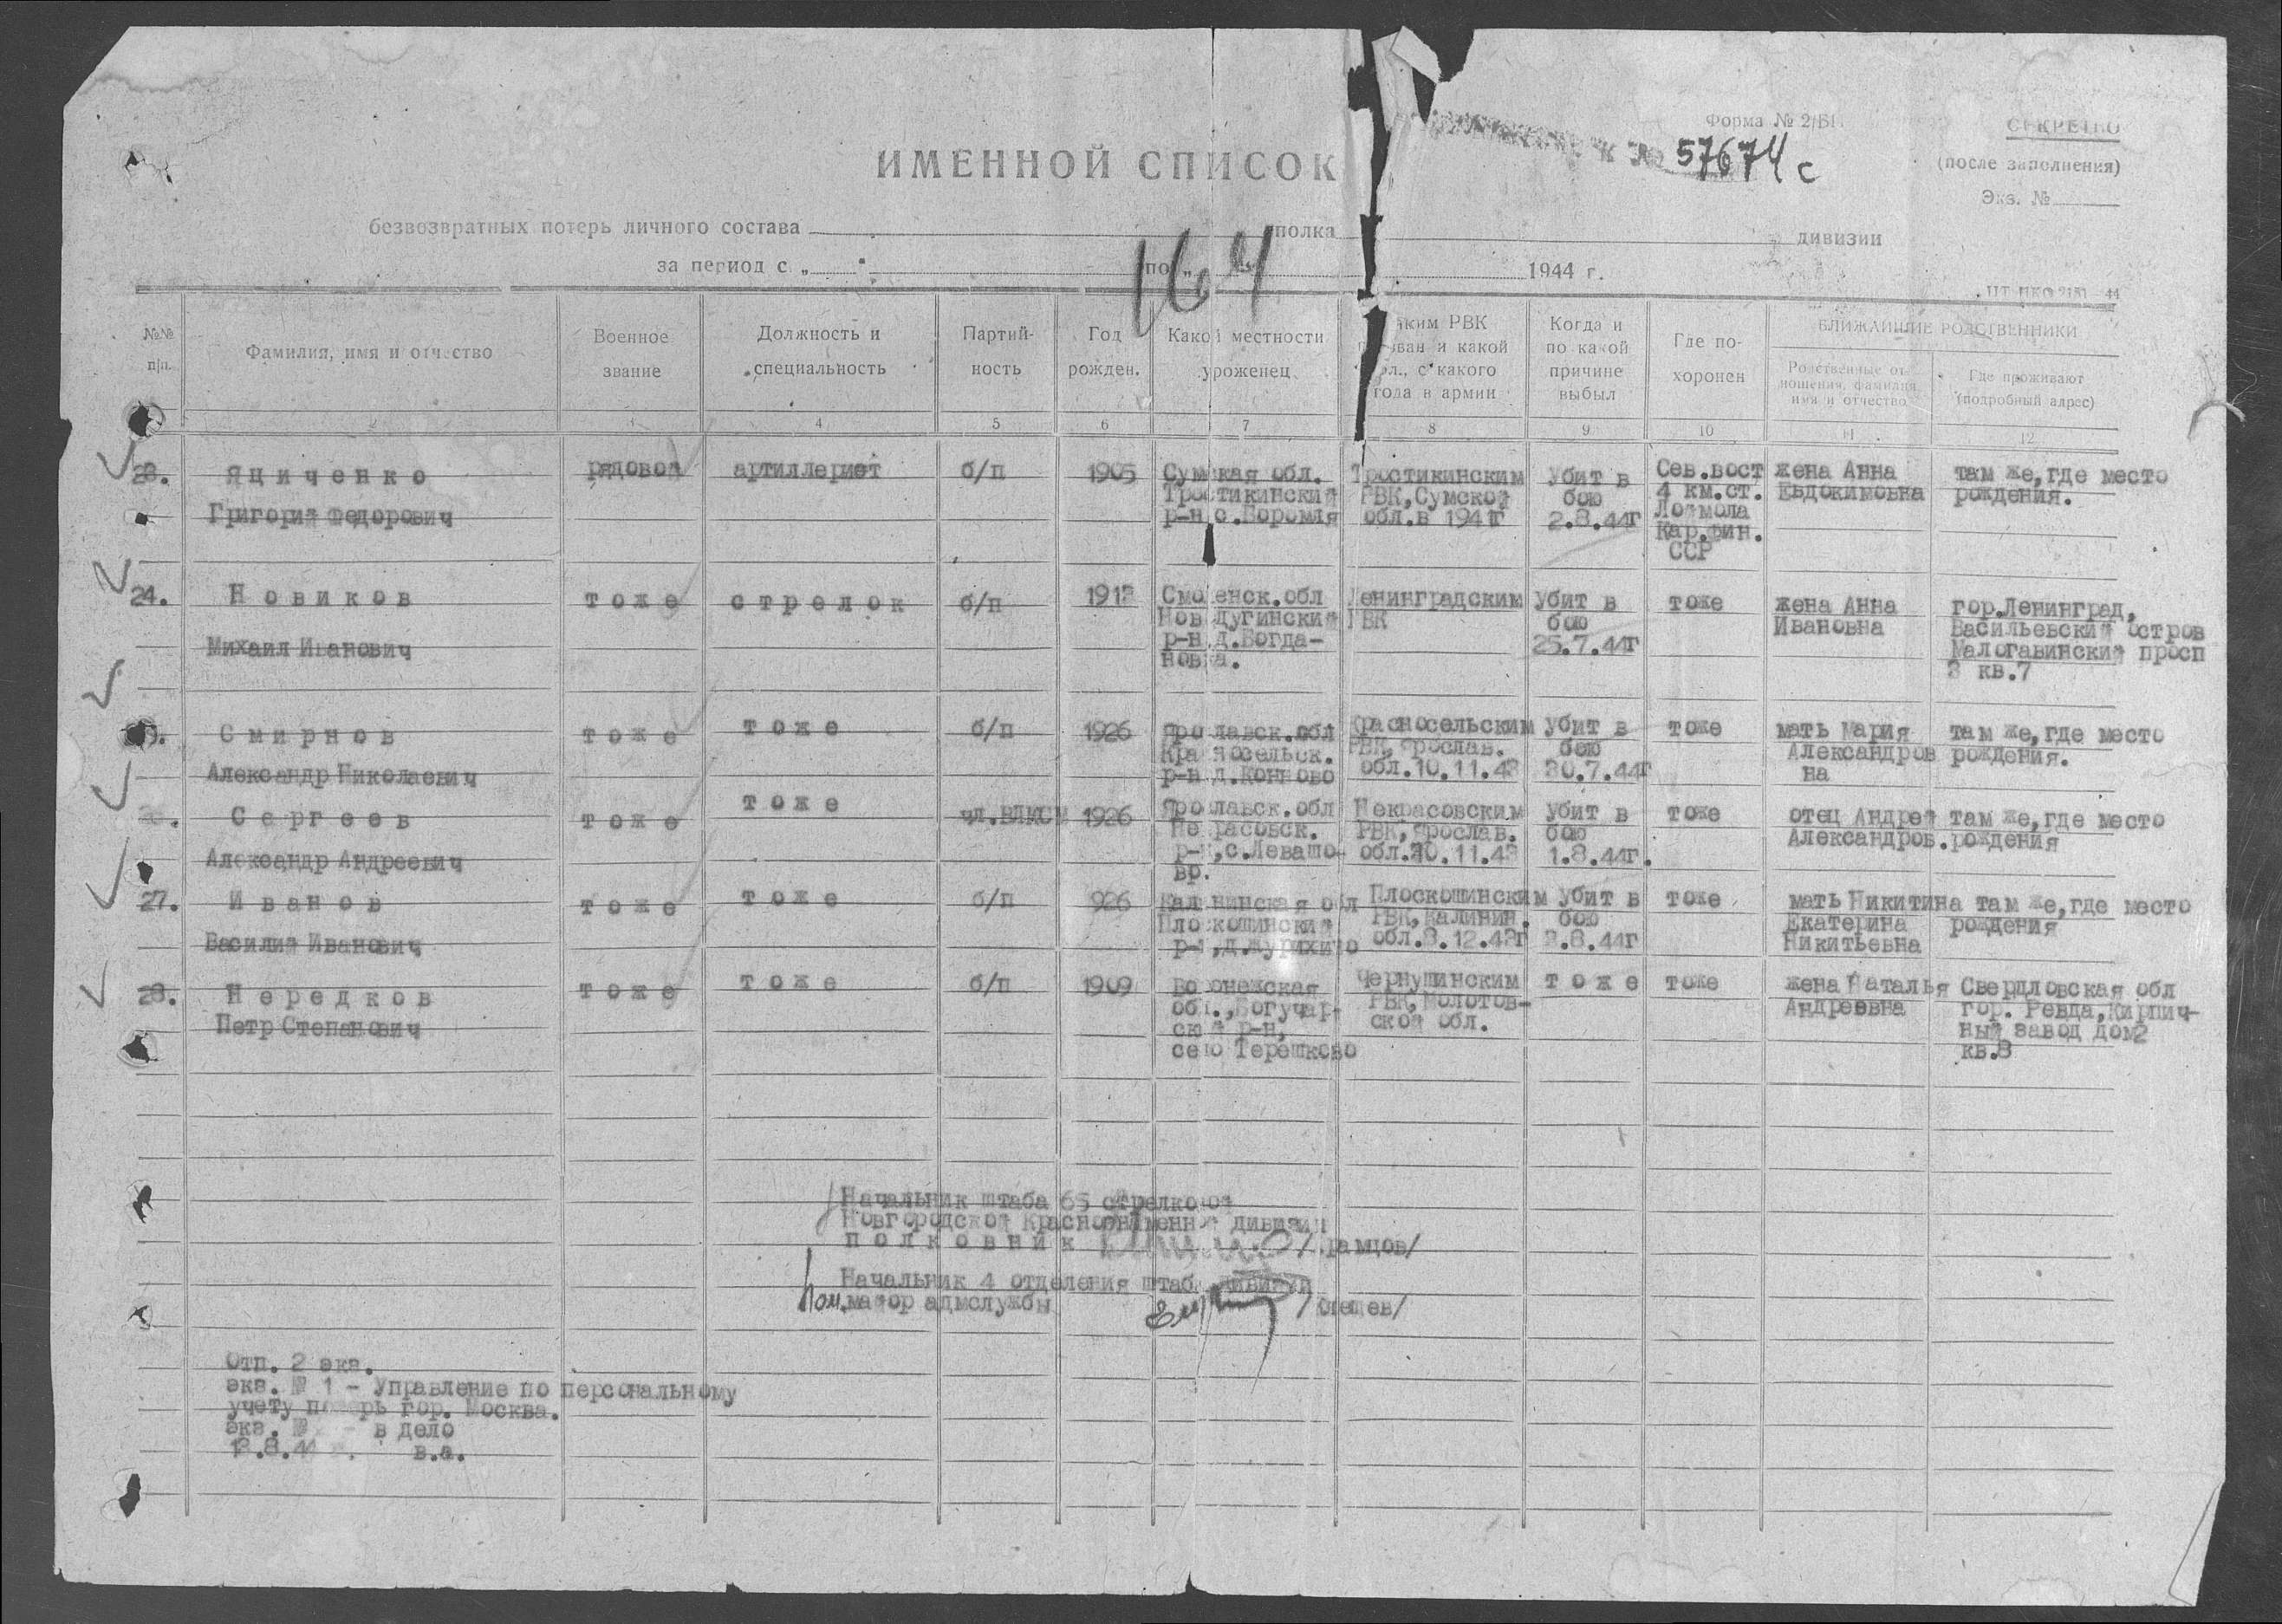 Форма № 2/БП
СЕКРЕТНО
к № 57674с
(после заполнения)
ИМЕННОЙ СПИСОК
Экз. №
безвозвратных потерь личного состава полка дивизии
164
за период с „ “ по „ 1944 г.
№№ п/п.
Фамилия, имя и отчество
Военное звание
Должность и специальность
Партий-
ность
Год рожден.
Какой местности уроженец
РВК
и какой
с какого
года в армии
Когда и
по какой
причине
выбыл
Где по-
хоронен
БЛИЖАЙШИЕ РОДСТВЕННИКИ
Родственные от-
ношения, фамилия,
имя и отчество
Где проживают
(подробный адрес)
2 3 4 5 6 7 8 9 10 11 12
23.
Яциченко
Григорий Федорович
рядовой
артиллерист
б/п
1905
Сумская обл.
Тростикинский
р-н с.Боромля
Тростикинским
РВК, Сумской
обл. в 1941г
Убит в
бою
2.8.44г
Сев.вост
4 км.ст.
Лоймола
Кар.фин.
ССР
жена Анна
Евдокимовна
там же, где место
рождения.
24.
Новиков
Михаил Иванович
тоже
стрелок
б/п
Смоленск.обл
Новодугинский
р-н д.Богда-
новка.
Ленинградским
РВК
Убит в
бою
25.7.44г
тоже
жена Анна
Ивановна
гор.Ленинград,
Васильевский остров
Малогавинский просп
3 кв.7
Смирнов
Александр Николаевич
тоже
тоже
б/п
1926
Ярославск.обл
Красносельск.
р-н д.Конново
Красносельским
РВК, Ярослав.
обл.10.11.43
Убит в
бою
30.7.44г
тоже
мать Мария
Александров
на
там же, где место
рождения.
Сергеев
Александр Андреевич
тоже
тоже
чл.ВЛКСМ
1926
Ярославск.обл
Некрасовск.
р-н,с.Левашо-
во.
Некрасовским
РВК, Ярослав.
обл.10.11.43
Убит в
бою
1.8.44г.
тоже
отец Андрей
Александров.
там же, где место
рождения
27.
Иванов
Василий Иванович
тоже
тоже
б/п
926
Калининская обл
Плоскошинский
р-н,д.Журихино
Плоскошинским
РВК, Калинин.
обл.8.12.42г
Убит в
бою
2.8.44г
тоже
мать Никитина
Екатерина
Никитьевна
там же, где место
рождения
28.
Нередков
Петр Степанович
тоже
тоже
б/п
1909
Воронежская
обл.,Богучар-
ский р-н,
село Терешково
Чернушинским
РВК, Молотов-
ской обл.
тоже
тоже
жена Наталья
Андреевна
Свердловская обл
гор. Ревда, Кирпич-
ный завод дом2
кв.8
Начальник штаба 65 стрелковой
Новгородской Краснознаменной дивизии
полковник /Храмцов/
Начальник 4 отделения штаба дивизии
Пом. майор адмслужбы /Клещев/
Отп. 2 экз.
экз. № 1 - Управление по персональному
учету потерь гор. Москва.
экз. № - в дело
.8.44 в.а.